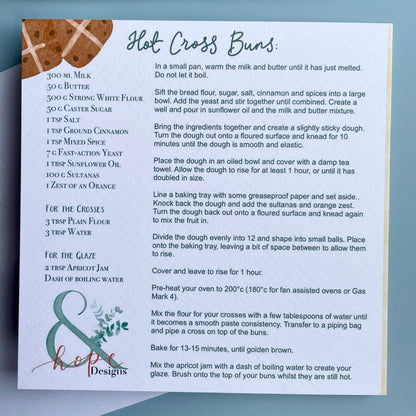 Hot Cross Buns:
300 ml Milk
50 g Butter
500 g Strong White Flour
50 g Caster Sugar
1 tsp Salt
1 tsp Ground Cinnamon
1 tsp Mixed Spice
7 g Fast-action Yeast
1 tbsp Sunflower Oil
100 g Sultanas
1 Zest of an Orange
For the Crosses
3 tbsp Plain Flour
3 tbsp Water
For the Glaze
2 tbsp Apricot Jam
Dash of boiling water
In a small pan, warm the milk and butter until it has just melted.
Do not let it boil.
Sift the bread flour, sugar, salt, cinnamon and spices into a large
bowl. Add the yeast and stir together until combined. Create a
well and pour in sunflower oil and the milk and butter mixture.
Bring the ingredients together and create a slightly sticky dough.
Turn the dough out onto a floured surface and knead for 10
minutes until the dough is smooth and elastic.
Place the dough in an oiled bowl and cover with a damp tea
towel. Allow the dough to rise for at least 1 hour, or until it has
doubled in size.
Line a baking tray with some greaseproof paper and set aside..
Knock back the dough and add the sultanas and orange zest.
Turn the dough back out onto a floured surface and knead again
to mix the fruit in.
Divide the dough evenly into 12 and shape into small balls. Place
onto the baking tray, leaving a bit of space between to allow them
to rise.
Cover and leave to rise for 1 hour.
Pre-heat your oven to 200°c (180°c for fan assisted ovens or Gas
Mark 4).
Mix the flour for your crosses with a few tablespoons of water until
it becomes a smooth paste consistency. Transfer to a piping bag
and pipe a cross on top of the buns.
Bake for 13-15 minutes, until golden brown.
Mix the apricot jam with a dash of boiling water to create your
glaze. Brush onto the top of your buns whilst they are still hot.
&
hope
Designs